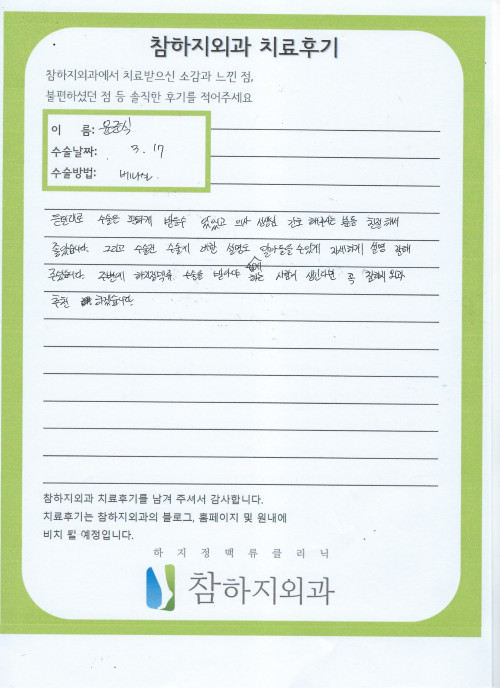 참하지외과 치료후기
참하지외과에서 치료받으신 소감과 느낀 점,
불편하셨던 점 등 솔직한 후기를 적어주세요
이 름: 윤준식
수술날짜: 3. 17
수술방법: 베나실
수술은 편하게 받을수 있었고 의사 선생님 간호 해주시는 분들 친절해서
좋았습니다. 그리고 수술전 수술후에 대한 설명도 알아들을수있게 자세하게 설명 잘해
주셨습니다. 주변에 하지정맥류 수술을 받아야 하는 사람이 생긴다면 꼭 참하지외과
추천 하겠습니다.
참하지외과 치료후기를 남겨 주셔서 감사합니다.
치료후기는 참하지외과의 블로그, 홈페이지 및 원내에
비치 될 예정입니다.
하지정맥류클리닉
참하지외과